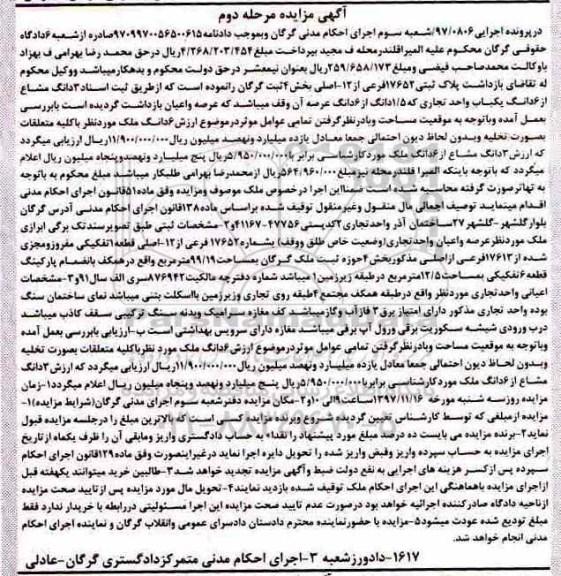 آگهی مزایده مرحله دوم
درپرونده اجرایی۹۷/۰۸۰۶/شعبه سوم اجرای احکام مدنی گرگان وبموجب دادنامه۹۷۰۹۹۷۰۰۵۶۵۰۰۶۱۵صادره ازشعبه۶دادگاه
حقوقی گرگان محکوم علیه المیراقلندرمحله ف مجید بپرداخت مبلغ۴/۲۶۸/۲۰۳/۴۵۴ریال درحق محمد رضا بهرامی ف بهزاد
باوکالت محمدصاحب فیضی ومبلغ۲۵۹/۶۵۸/۱۷۳ریال بعنوان نیمعشر درحق دولت محکوم و بدهکارمیباشد ووکیل محکوم
له تقاضای بازداشت پلاک ثبتی۱۷۶۵۲فرعی از۱۲-اصلی بخش۴ثبت گرگان رانموده است که ازطریق ثبت اسناد۳دانگ مشاع
از۶دانگ یکباب واحد تجاری که۱/۵دانگ از۶دانگ عرصه آن وقف میباشد که عرصه واعیان بازداشت گردیده است بابررسی
بعمل آمده وباتوجه به موقعیت مساحت وبادرنظرگرفتن تمامی عوامل موثردرموضوع ارزش۶دانگ ملک موردنظر باکلیه متعلقات
بصورت تخلیه وبدون لحاظ دیون احتمالی جمعا معادل یازده میلیارد ونهصد میلیون ریال۱۱/۹۰۰/۰۰۰/۰۰۰ریال ارزیابی میگردد
که ارزش۳دانگ مشاع از۶دانگ ملک موردکارشناسی برابر با۵/۹۵۰/۰۰۰/۰۰۰ریال پنج میلیارد ونهصدوپنجاه میلیون ریال اعلام
میگردد که باتوجه باینکه المیرا قلندرمحله نیزمبلغ۵۶۴/۹۶۰/۰۰۰ریال ازمحمدرضا بهرامی طلبکار میباشد مبلغ محکوم به باتوجه
به تهاترصورت گرفته محاسبه شده است ضمنااین اجرا درخصوص ملک موصوف ومزایده وفق ماده۵۱قانون اجرای احکام مدنی
اقدام مینماید توصیف اجمالی مال منقول وغیرمنقول توقیف شده براساس ماده۱۳۸قانون اجرای احکام مدنی آدرس گرگان
بلوارگلشهر-گلشهر۲۷ساختمان آذر واحدتجاری۲کدپستی۴۷۷۵۶-۴۱۱۶۷و۲-مشخصات ثبتی طبق تصویرسندتک برگی ابرازی
ملک موردنظرعرصه واعیان واحدتجاری(وضعیت خاص طلق ووقف) بشماره۱۷۶۵۲ فرعی از۱۲-اصلی قطعه۱تفکیکی مفروزومجزی
شده از۱۷۶۱۳فرعی ازاصلی مذکوربخش۴حوزه ثبت ملک گرگان بمساحت۹۹/۱۹مترمربع واقع درهمکف بانضمام پارکینگ
قطعه۶تفکیکی بمساحت۱۲/۵مترمربع درطبقه زیرزمین۱میباشد شماره دفترچه مالکیت۸۷۶۹۴۲سری الف سال۹۱و۳-مشخصات
اعیانی واحدتجاری موردنظر واقع درطبقه همکف مجتمع۴طبقه روی تجاری وزیرزمین بااسکلت بتنی میباشد نمای ساختمان سنگ
بوده واحد تجاری مذکور دارای امتیاز برق۳ فازآب وگازمیباشدکف مغازه سرامیک وبدنه سنگ ترکیبی سقف کاذب میباشد
درب ورودی شیشه سکوریت برقی ورول آپ برقی میباشد مغازه دارای سرویس بهداشتی است ب-ارزیابی بابررسی بعمل آمده
وباتوجه به موقعیت مساحت وبادرنظرگرفتن تمامی عوامل موثردرموضوع ارزش۶دانگ ملک مورد نظرباکلیه متعلقات بصورت تخلیه
وبدون لحاظ دیون احتمالی جمعا معادل یازده میلیارد ونهصد میلیون ریال۱۱/۹۰۰/۰۰۰/۰۰۰ریال ارزیابی میگردد که ارزش۳دانگ
مشاع از۶دانگ ملک موردکارشناسی برابربا۵/۹۵۰/۰۰۰/۰۰۰ریال پنج میلیارد ونهصد وپنجاه میلیون ریال اعلام میگردد۱-زمان
مزایده روزسه شنبه مورخه ۱۳۹۷/۱۱/۱۶ساعت۹الی۱۰و۲-مکان مزایده دفترشعبه سوم اجرای مدنی گرگان(شرایط مزایده)۱-
مزایده ازمبلغی که توسط کارشناس تعیین گردیده شروع وبرنده مزایده کسی است که بالاترین مبلغ را درجلسه مزایده قبول
نماید۲-برنده مزایده می بایست ده درصد مبلغ مورد پیشنهاد را نقداء به حساب دادگستری واریز ومابقی آن را ظرف یکماه ازتاریخ
اجرای مزایده به حساب سپرده واریز وفیش واریز شده را تحویل دایره اجرا نماید درغیراینصورت وفق ماده۱۲۹قانون اجرای احکام
سپرده پس ازکسر هزینه های اجرایی به نفع دولت ضبط وآگهی مزایده تجدید خواهد شد۳-طالبین خرید میتوانند یکهفته قبل
ازاجرای مزایده باهماهنگی این اجرای احکام ملک توقیف شده بازدید نمایند۴-تحویل مال مورد مزایده پس ازتایید صحت مزایده
ازناحیه دادگاه صادرکننده اجرائیه خواهد بود درصورت عدم تایید صحت مزایده این اجرا مسئولیتی دررابطه با خریدار ندارد فقط
مبلغ تودیع شده عودت میشود۵-مزایده با حضورنماینده محترم دادستان دادسرای عمومی وانقلاب گرگان و نماینده اجرای احکام
مدنی انجام خواهد شد.
۱۶۱۷-دادورزشعبه ۳-اجرای احکام مدنی متمرکزدادگستری گرگان-عادلی